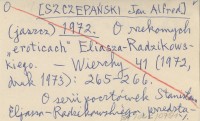 O [SZCZEPAŃSKI Jan Alfred]
(jaszcz) 1972. O rzekomych
"eroticach" Eliasza-Radzikows-
kiego. — Wierchy 41 (1972,
druk 1973): 265-266.
O serii pocztówek Stanisława
Eljasza-Radzikowskiego, przedsta-